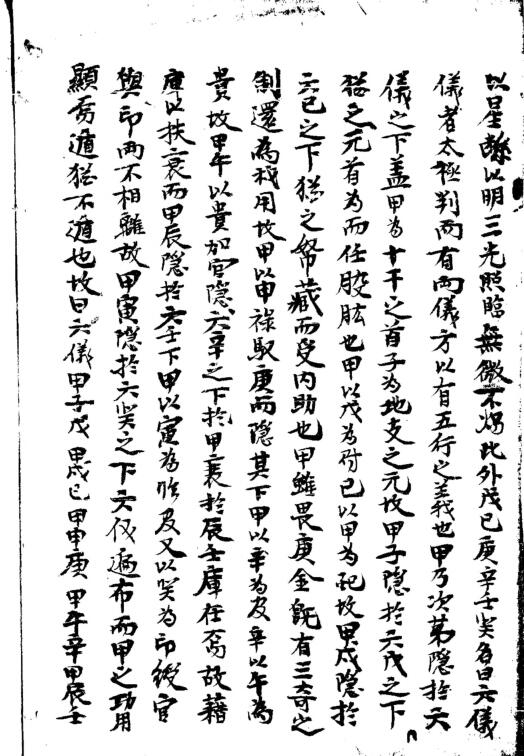 以星所以明三光照臨無微不燭此外戊己庚辛壬癸名曰六儀
儀者太極判而有兩儀方以有五行之義也甲乃次第隱於六
儀之下蓋甲為十干之首子為地支之元故甲子隱於六戊之下
猶之元首為而任股肱也甲以戊為財己以甲為配故甲戌隱於
六己之下猶之帑藏而受內助也甲雖畏庚金既有三奇之
制還為我用故甲以申祿馭庚而隱其下甲以辛為官辛以午為
貴故甲午以貴加官隱六辛之下於甲衰於辰壬庫在焉故藉
庫以扶衰而甲辰隱於六壬下甲以寅為 又以癸為印綬官
與印兩不相離故甲寅隱於六癸之下六儀遍布而甲之功用
顯焉遁猶不遁也故曰六儀甲子戊甲戌己甲申庚甲午辛甲辰壬